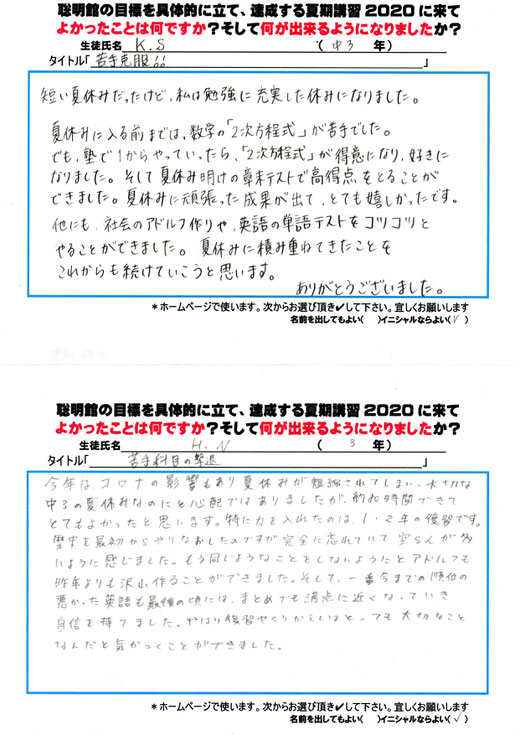 聡明館の目標を具体的に立て、達成する夏期講習2020に来て
よかったことは何ですか？そして何が出来るようになりましたか？
生徒氏名 K.S （ 中3 年）
タイトル「 苦手克服!! 」
短い夏休みだったけど、私は勉強に充実した休みになりました。
夏休みに入る前までは、数学の「2次方程式」が苦手でした。
でも、塾で1からやっていったら、「2次方程式」が得意になり、好きに
なりました。そして夏休み明けの章末テストで高得点をとることが
できました。夏休みに頑張った成果が出て、とても嬉しかったです。
他にも、社会のアドルフ作りや、英語の単語テストをコツコツと
やることができました。夏休みに積み重ねてきたことを
これからも続けていこうと思います。
ありがとうございました。
＊ホームページで使います。次からお選び頂き✔して下さい。宜しくお願いします
名前を出してもよい（ ）イニシャルならよい（✓）
聡明館の目標を具体的に立て、達成する夏期講習2020に来て
よかったことは何ですか？そして何が出来るようになりましたか？
生徒氏名 H.N （ 3 年）
タイトル「 苦手科目の撃退 」
今年は、コロナの影響もあり夏休みが短縮されてしまい、大切な
中3の夏休みなのにと心配ではありましたが、約80時間できて
とてもよかったと思います。特に力を入れたのは、1・2年の復習です。
歴史を最初からやりなおしたのですが完全に忘れていて空らんが多
いように感じました。もう同じようなことをしないようにとアドルフも
昨年よりも沢山作ることができました。そして、一番今までの順位の
悪かった英語も最後の頃には、まとめでも満点に近くなっていき
自信を持てました。やはり復習やくりかえしはとっても大切なこと
なんだと気がつくことができました。
＊ホームページで使います。次からお選び頂き✔して下さい。宜しくお願いします
名前を出してもよい（ ）イニシャルならよい（✓）